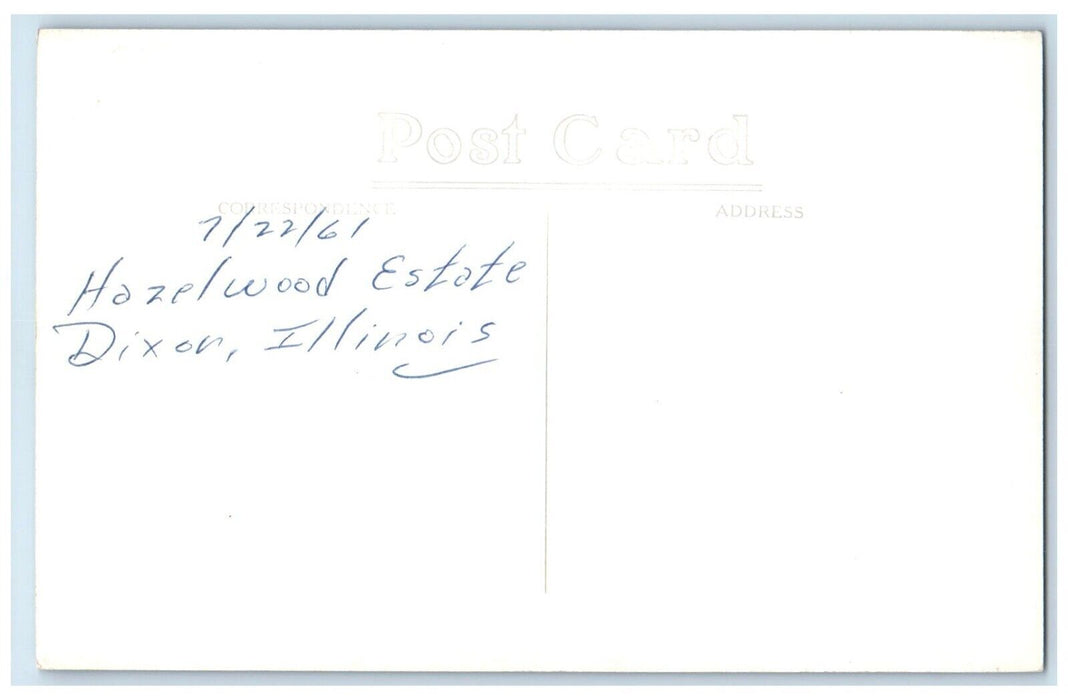 Post Card
CORRESPONDENCE
ADDRESS
7/22/61
Hazelwood Estate
Dixon, Illinois